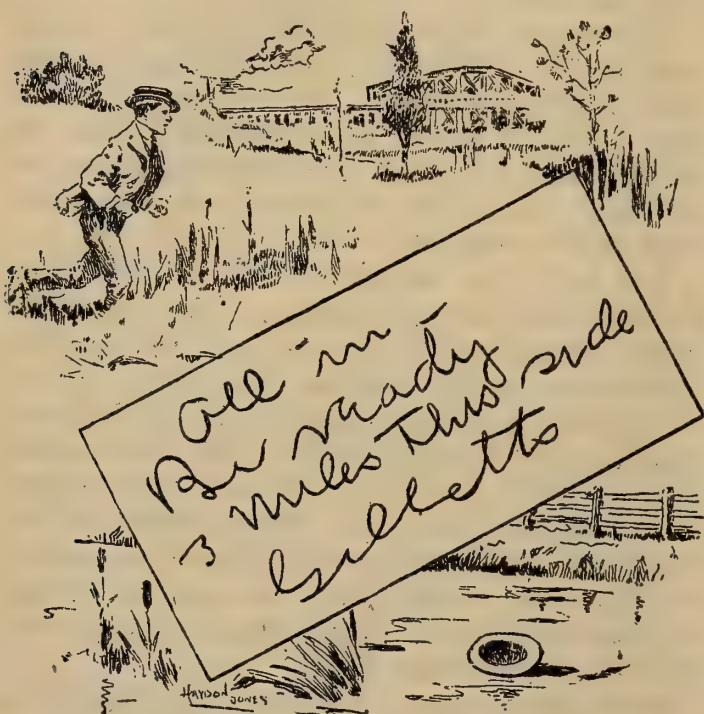 All in -
Be ready
3 miles This side
Gilletts
HAYDON
JONES